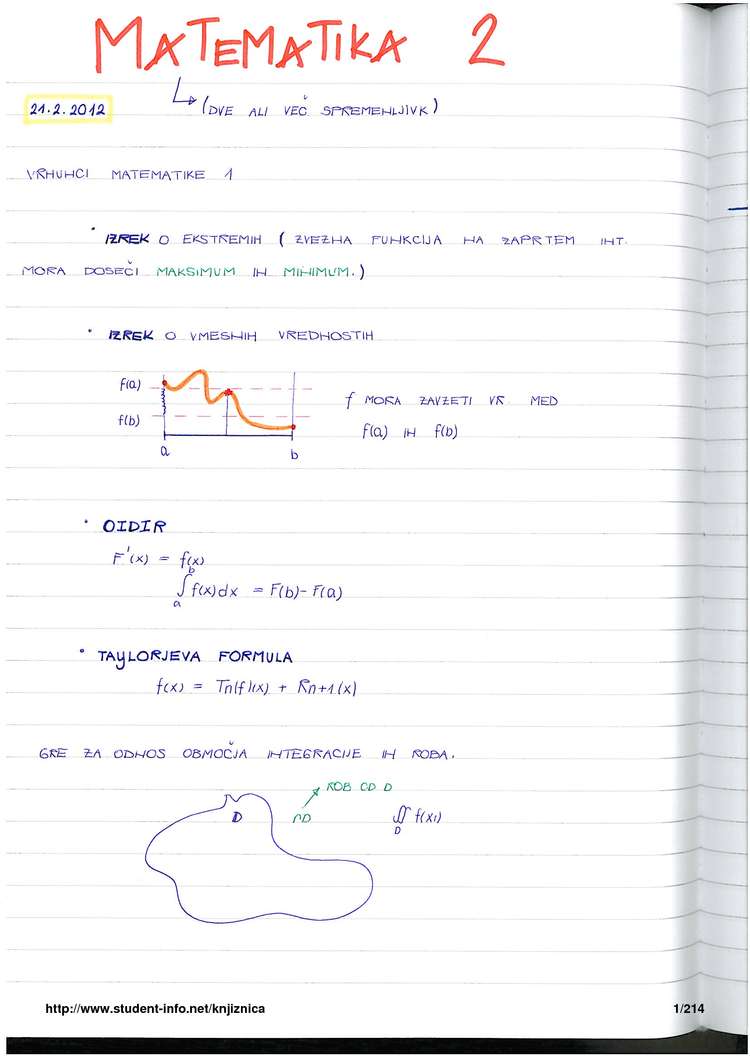 MATEMATIKA 2
21.2.2012
(DVE ALI VEČ SPREMENLJIVK)
VRHUNCI MATEMATIKE 1
• IZREK O EKSTREMIH (ZVEZNA FUNKCIJA NA ZAPRTEM INT.
MORA DOSEČI MAKSIMUM IN MINIMUM.)
• IZREK O VMESNIH VREDNOSTIH
f(a)
f(b)
a b
f MORA ZAVZETI VR. MED
f(a) IN f(b)
• OIDIR
F'(x) = f(x)
∫ₐᵇ f(x)dx = F(b)-F(a)
• TAYLORJEVA FORMULA
f(x) = Tn(f)(x) + Rn+1(x)
GRE ZA ODNOS OBMOČJA INTEGRACIJE IN ROBA.
ROB OD D
D
∬ f(x)
D
http://www.student-info.net/knjiznica
1/214